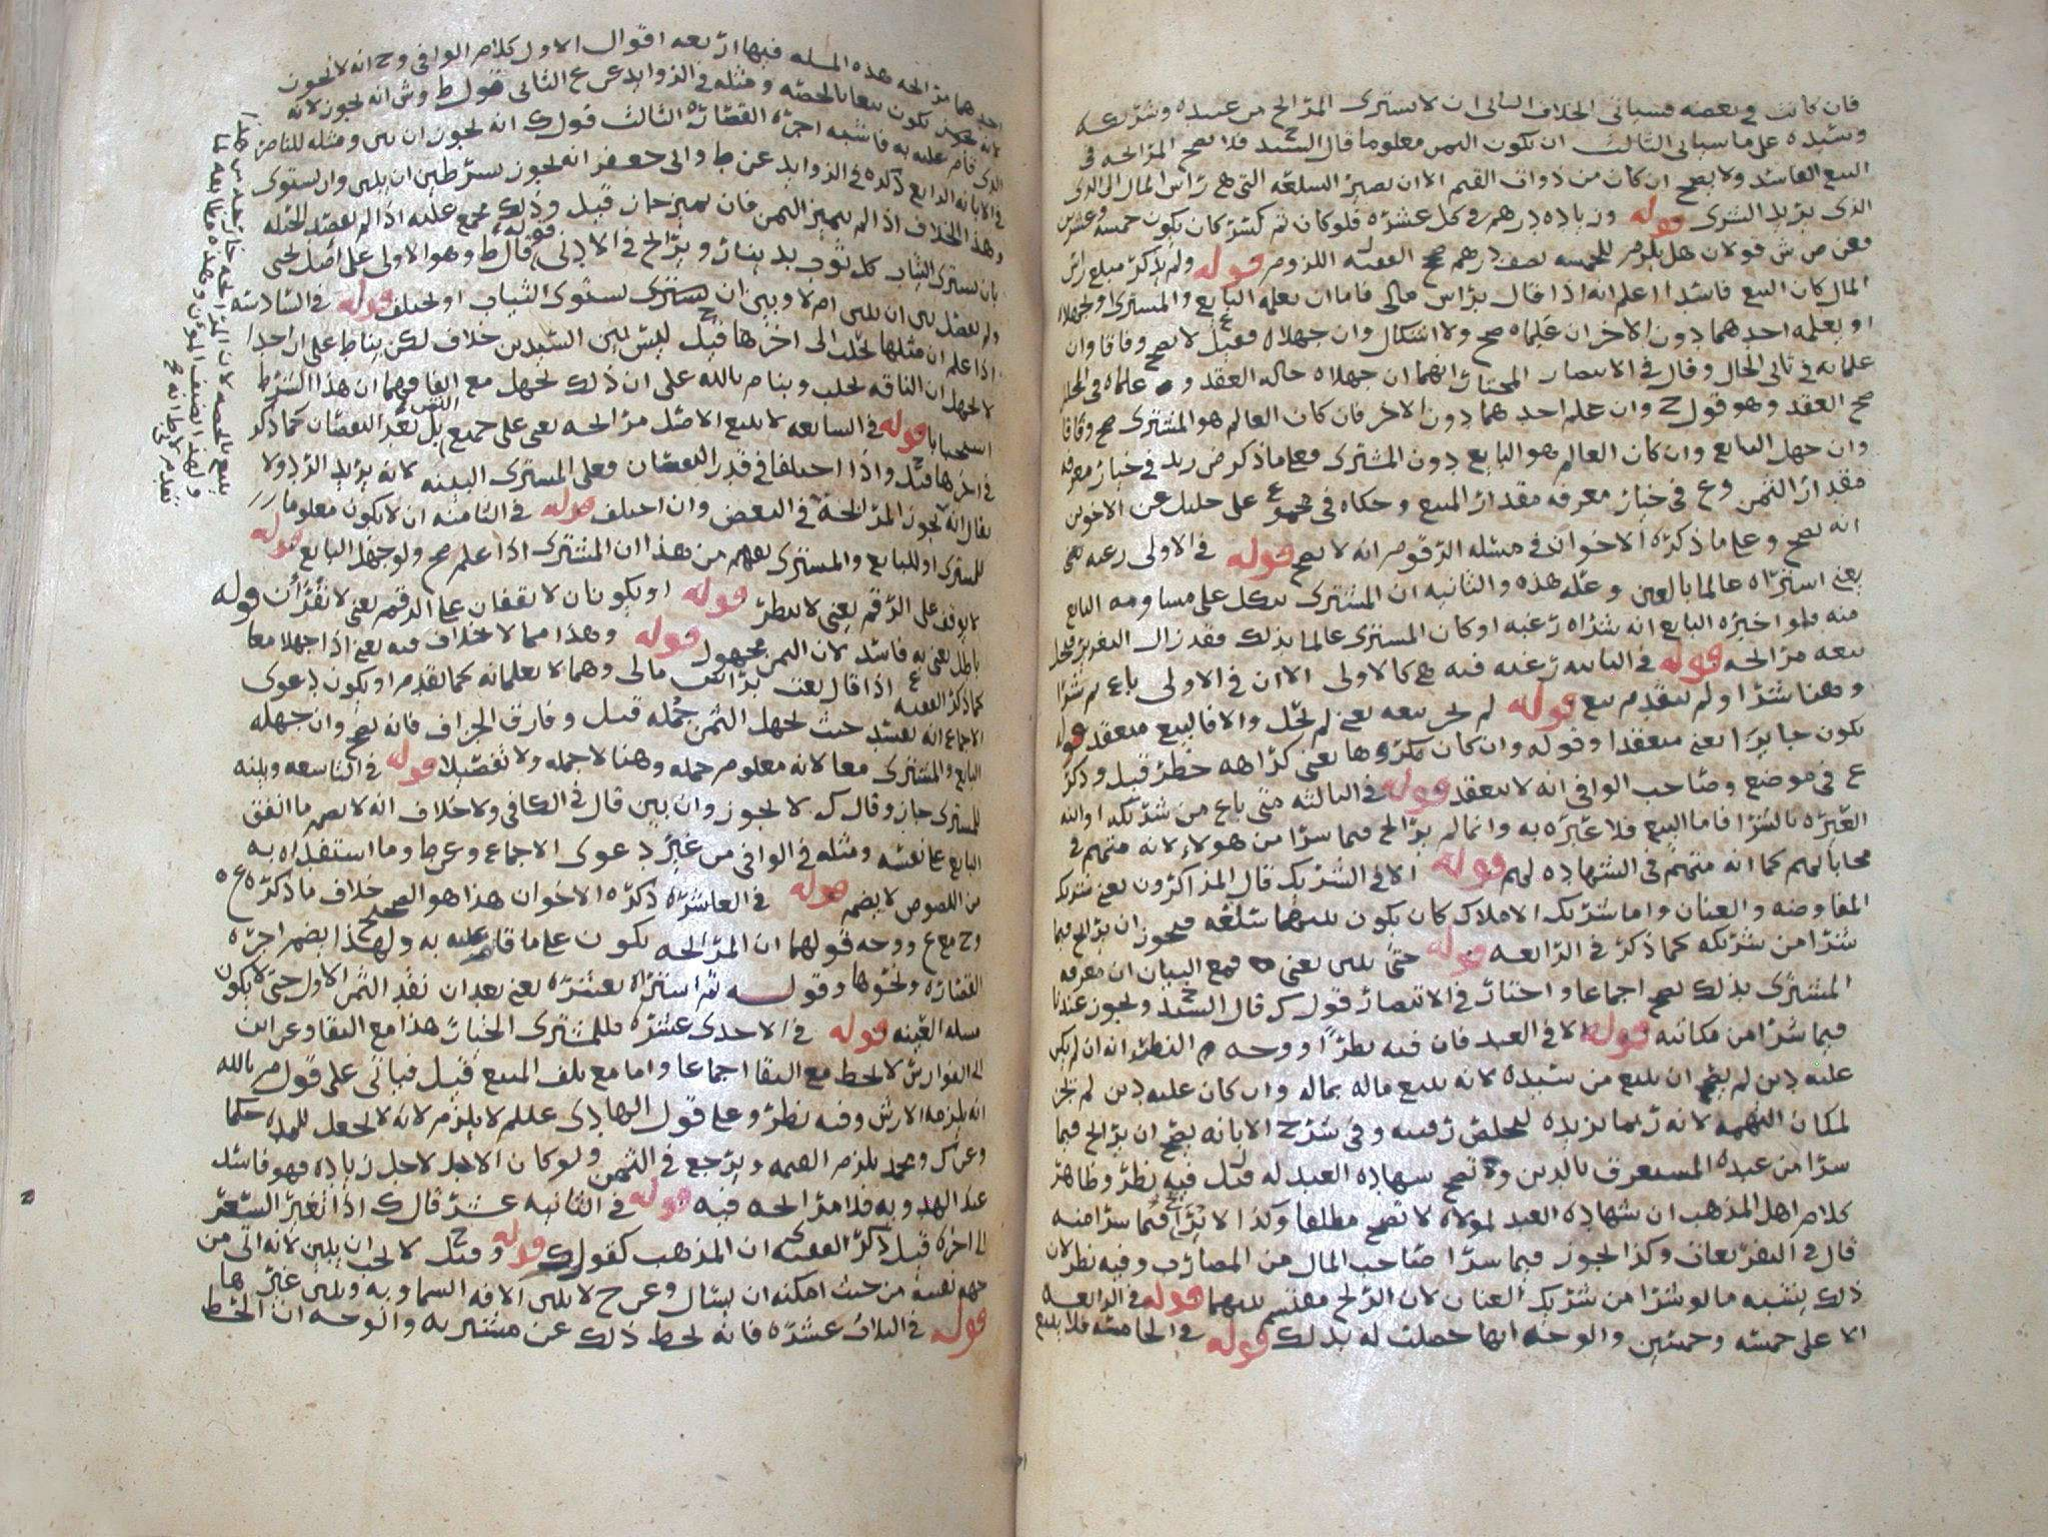 فان كانت في بعضه فسياتي الخلاف الثاني ان لا يشتري المرابح من عبده وشريكه
وسيده على ما سياتي الثالث ان يكون الثمن معلوما قال السيد ح فلا تصح المرابحه في
البيع الفاسد ولا يصح ان كان من ذوات القيم الا ان تصير السلعه التي هي راس المال الى الذي
الذي يريد الشرى قوله وزياده درهم في كل عشره فلو كان ثم كسر كان يكون خمسه وعشرين
فعن ص ش قولان هل يلزم للخمسه نصف درهم صح الفقيه ل اللزوم قوله ولم يذكر مبلغ راس
المال كان البيع فاسدا اعلم انه اذا قال براس مالي فاما ان يعلمه البايع والمشترى او يجهلاه
او يعلمه احدهما دون الاخر ان علماه صح ولا اشكال وان جهلاه فقيل ع لا يصح وفاقا وان
علما به في ثاني الحال وقال في الانتصار المختار انهما ان جهلاه حاله العقد و علماه في المجلس
صح العقد وهو قول ح وان علم احدهما دون الاخر فان كان العالم هو المشترى صح وفاقا
وان جهل البايع وان كان العالم هو البايع دون المشترى فعلى ما ذكر ض زيد في خيار معرفه
مقدار الثمن وع في خيار معرفه مقدار المبيع وحكاه في مجموع على خليل عن الاخوين
انه يصح وعلى ما ذكره الاخوان في مسئله الرقوم انه لا يصح قوله في الاولى رغبه يعني
يعني اشتراه عالما بالغبن وعله هذه والثانيه ان المشترى يتكل على مساومه البايع
منه فلو اخبره البايع انه شراه رغبه او كان المشترى عالما بذلك فقد زال التغرير فيحل
بيعه مرابحه قوله في الثانيه رغبه فيه هي كالاولى الا ان في الاولى باع ثم شرا
وهنا شرا ولم يتقدم بيع قوله لم يحز بيعه يعني لم يحل والا فالبيع منعقد قوله
يكون جايزا يعني منعقدا وقوله وان كان مكروها يعني كراهه حظر قيل وذكر
ع في موضع وصاحب الوافي انه لا ينعقد قوله في الثالثه متى باع من شريكه او ابنه
العبره بالشرا فاما البيع فلا عبره به وانما لم يرابح فيما شرا من هولاء لانه متهم في
محاباتهم كما انه متهم في الشهاده لهم قوله الا في الشريك قال المذاكرون يعني شريك
المفاوضه والعنان واما شريك الاملاك كان يكون بينهما سلعه فيجوز ان يرابح فيما
شرا من شريكه كما ذكر في الرابعه قوله حتى يبين يعني فمع البيان ان معرفه
المشترى بذلك يصح اجماعا واختار في الانتصار قول ك قال السيد ح ويجوز عندنا
فيما شرا من مكاتبه قوله الا في العبد فان فيه نظرا ووجه م النظر انه ان لم يكن
عليه دين لم يصح ان يبيع من سيده لانه يبيع ماله بماله وان كان عليه دين لم يجز
لمكان التهمه لانه ربما يزيده ليخلص رقبته وفي شرح الابانه يصح ان يرابح فيما
شرا من عبده المستغرق بالدين ولا تصح شهاده العبد له قيل ل فيه نظر وظاهر
كلام اهل المذهب ان شهاده العبد لمولاه لا تصح مطلقا وكذا لا يرابح فيما شرا منه
قال في التقريعات وكذا يجوز فيما شرا صاحب المال من المضارب وفيه نظر لان
ذلك يشبه ما لو شرا من شريك العنان لان الربح مقتسم بينهما قوله في الرابعه
الا على خمسه وخمسين والوجه انها حصلت له بذلك قوله في الخامسه فلا يبيع
احدهما مرابحه هذه المسله فيها اربعه اقوال الاول كلام الوافي وح انه لا يجوز
لانه يكون بيعا بالحصه ومثله في الزوايد عن ع الثاني قول ط وش انه يجوز لانه
الذي قام عليه به فاشبه اجره القصاره الثالث قول ك انه يجوز ان بين ومثله للناصر
في الابانه الرابع ذكره في الزوايد عن ط وابي جعفر انه يجوز بشرطين ان يبين وان يستوى
وهذا الخلاف اذا لم يتميز الثمن فان تميز جاز قيل وذلك مجمع عليه اذا لم يقصد الحيله
بان يشترى الثياب كل ثوب بدينار ويرابح في الادنى قوله قال ط وهو الاولى على اصل يحيى
ولم يفصل بين ان يبين ام لا وبين ان يشترى بستوى الثياب او يختلف قوله في السادسه
اذا علم ان مثلها تحلب الى اخرها قيل ح ليس بين السيدين خلاف لكن بنا ط على ان احدا
لا يجهل ان الناقه تحلب وبنا م بالله على ان ذلك يجهل مع اتفاقهما ان هذا الشرط
استحبابا قوله في السابعه لا يبيع الاصل مرابحه يعني على جميع الثمن بل بقدر النقصان كما ذكر
في اخرها قيل واذا اختلفا في قدر النقصان فعلى المشترى البينه لانه يريد الرد ولا
يقال انه تجوز المرابحه في البعض وان اختلف قوله في الثامنه ان لا يكون معلوما
للمشترى او للبايع والمشترى يفهم من هذا ان المشترى اذا علم صح ولو جهل البايع قوله
لا يوقف على الرقم يعني لا ينظر قوله او يكونان لا يقفان على الرقم يعني لا يقران قوله
باطل يعني به فاسد لان الثمن مجهول قوله وهذا مما لا خلاف فيه يعني اذا جهلا معا
كما ذكر الفقيه ع اذا قال بعت براس مالي وهما لا يعلمانه كما تقدم او يكون دعوى
الاجماع انه يفسد حيث يجهل الثمن جمله قيل وفارق الجزاف فانه يصح وان جهله
البايع والمشترى معا لانه معلوم جمله وهنا لا جمله ولا تفصيلا قوله في التاسعه ويبينه
للمشترى جاز وقال ك لا يجوز وان بين قال في الكافي ولا خلاف انه لا يضم ما انفق
البايع على نفسه ومثله في الوافي من غير دعوى الاجماع وعن ط وما استفداه به
من اللصوص لا يضمه قوله في العاشره ذكره الاخوان هذا هو الصحيح خلاف ما ذكره ع
وح مع ع ووجه قولهما ان المرابحه يكون على ما قام عليه به ولهذا يضم اجره
القصاره ونحوها وقوله ثم اشتراه بعشره يعني بعد ان نقد الثمن الاول حتى لا يكون
مسله العينه قوله في الاحدى عشره فللمشترى الخيار هذا مع البقا وعن ابن
ابي الفوارس لا يحط مع البقا اجماعا واما مع تلف المبيع قيل فياتي على قول م بالله
انه يلزمه الارش وفيه نظر وعلى قول الهادي عليلم لا يلزم لانه لا يجعل للمده حكما
وعن ك ومحمد يلزم القيمه ويرجع في الثمن ولو كان الاجل لاجل زياده فهو فاسد
عند الهدويه فلا مرابحه فيه قوله في الثانيه عشر قال ك اذا تغير السعر
الى اخره قيل ذكر الفقيه ي ان المذهب كقول ك قوله وقيل ح لا يجب ان يبين لانه اتى من
جهه نفسه من حيث امكنه ان يسال وعن ح لا يبين الافه السماويه ويبين غيرها
قوله في الثلاث عشره فانه يحط ذلك عن مشتريه والوجه ان الحط
يبيع بالحصه لان المرابحه خارجه من هذا
ولهذا لصنف المؤن وهذه مانعه لما
تقدم لا بطانه